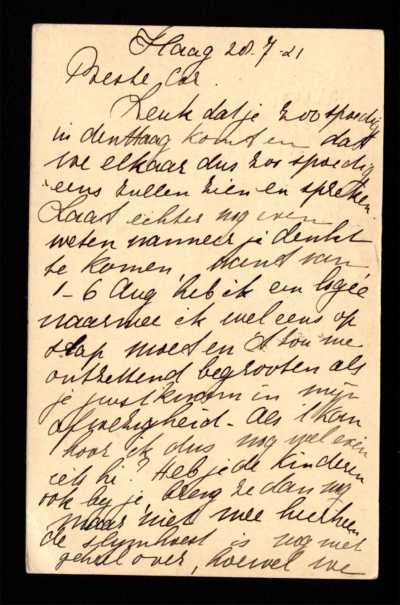 Haag 20.7-21
Beste Cor.
Leuk dat je zoo spoedig
in den Haag komt en dat
we elkaar dus zoo spoedig
eens zullen zien en spreken.
Laat echter nog even
weten wanneer je denkt
te komen, want van
1-6 Aug heb ik een logée
naarmee ik wel eens op
stap moet en 't zou me
ontzettend begrooten als
je juist kwam in mijn
afwezigheid. Als 't kan
hoor ik dus nog wel even
iets hé? Heb je de kinderen
ook by je, breng ze dan nog
maar niet mee hierheen
de slymhoest is nog niet
geheel over, hoewel we